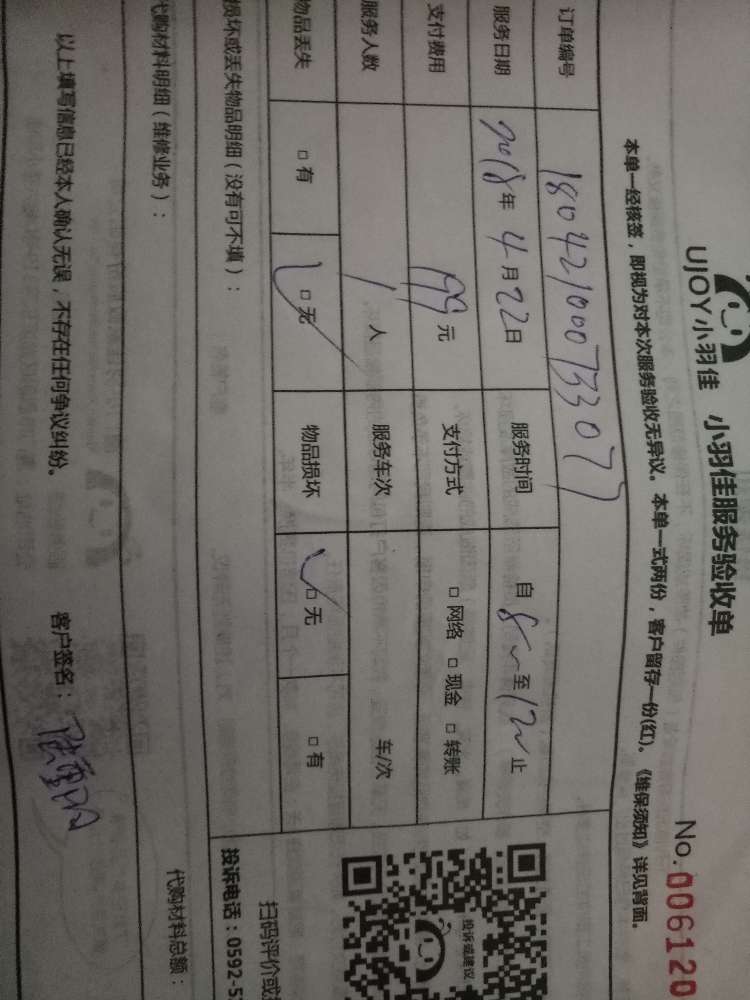 UJOY小羽佳 小羽佳服务验收单 No.006120
本单一经核签，即视为对本次服务验收无异议。本单一式两份，客户留存一份(红)。《维保须知》详见背面。
订单编号 18042100073307
服务日期 2018年4月22日 服务时间 自8~至12~止
支付费用 99元 支付方式 □网络 □现金 □转账
服务人数 1人 服务车次 车/次
物品丢失 □有 □无 物品损坏 □无 □有
损坏或丢失物品明细（没有可不填）：
投诉或建议
扫码评价或
投诉电话：0592-5
代购材料明细（维修业务）： 代购材料总额：
以上填写信息已经本人确认无误，不存在任何争议纠纷。 客户签名：